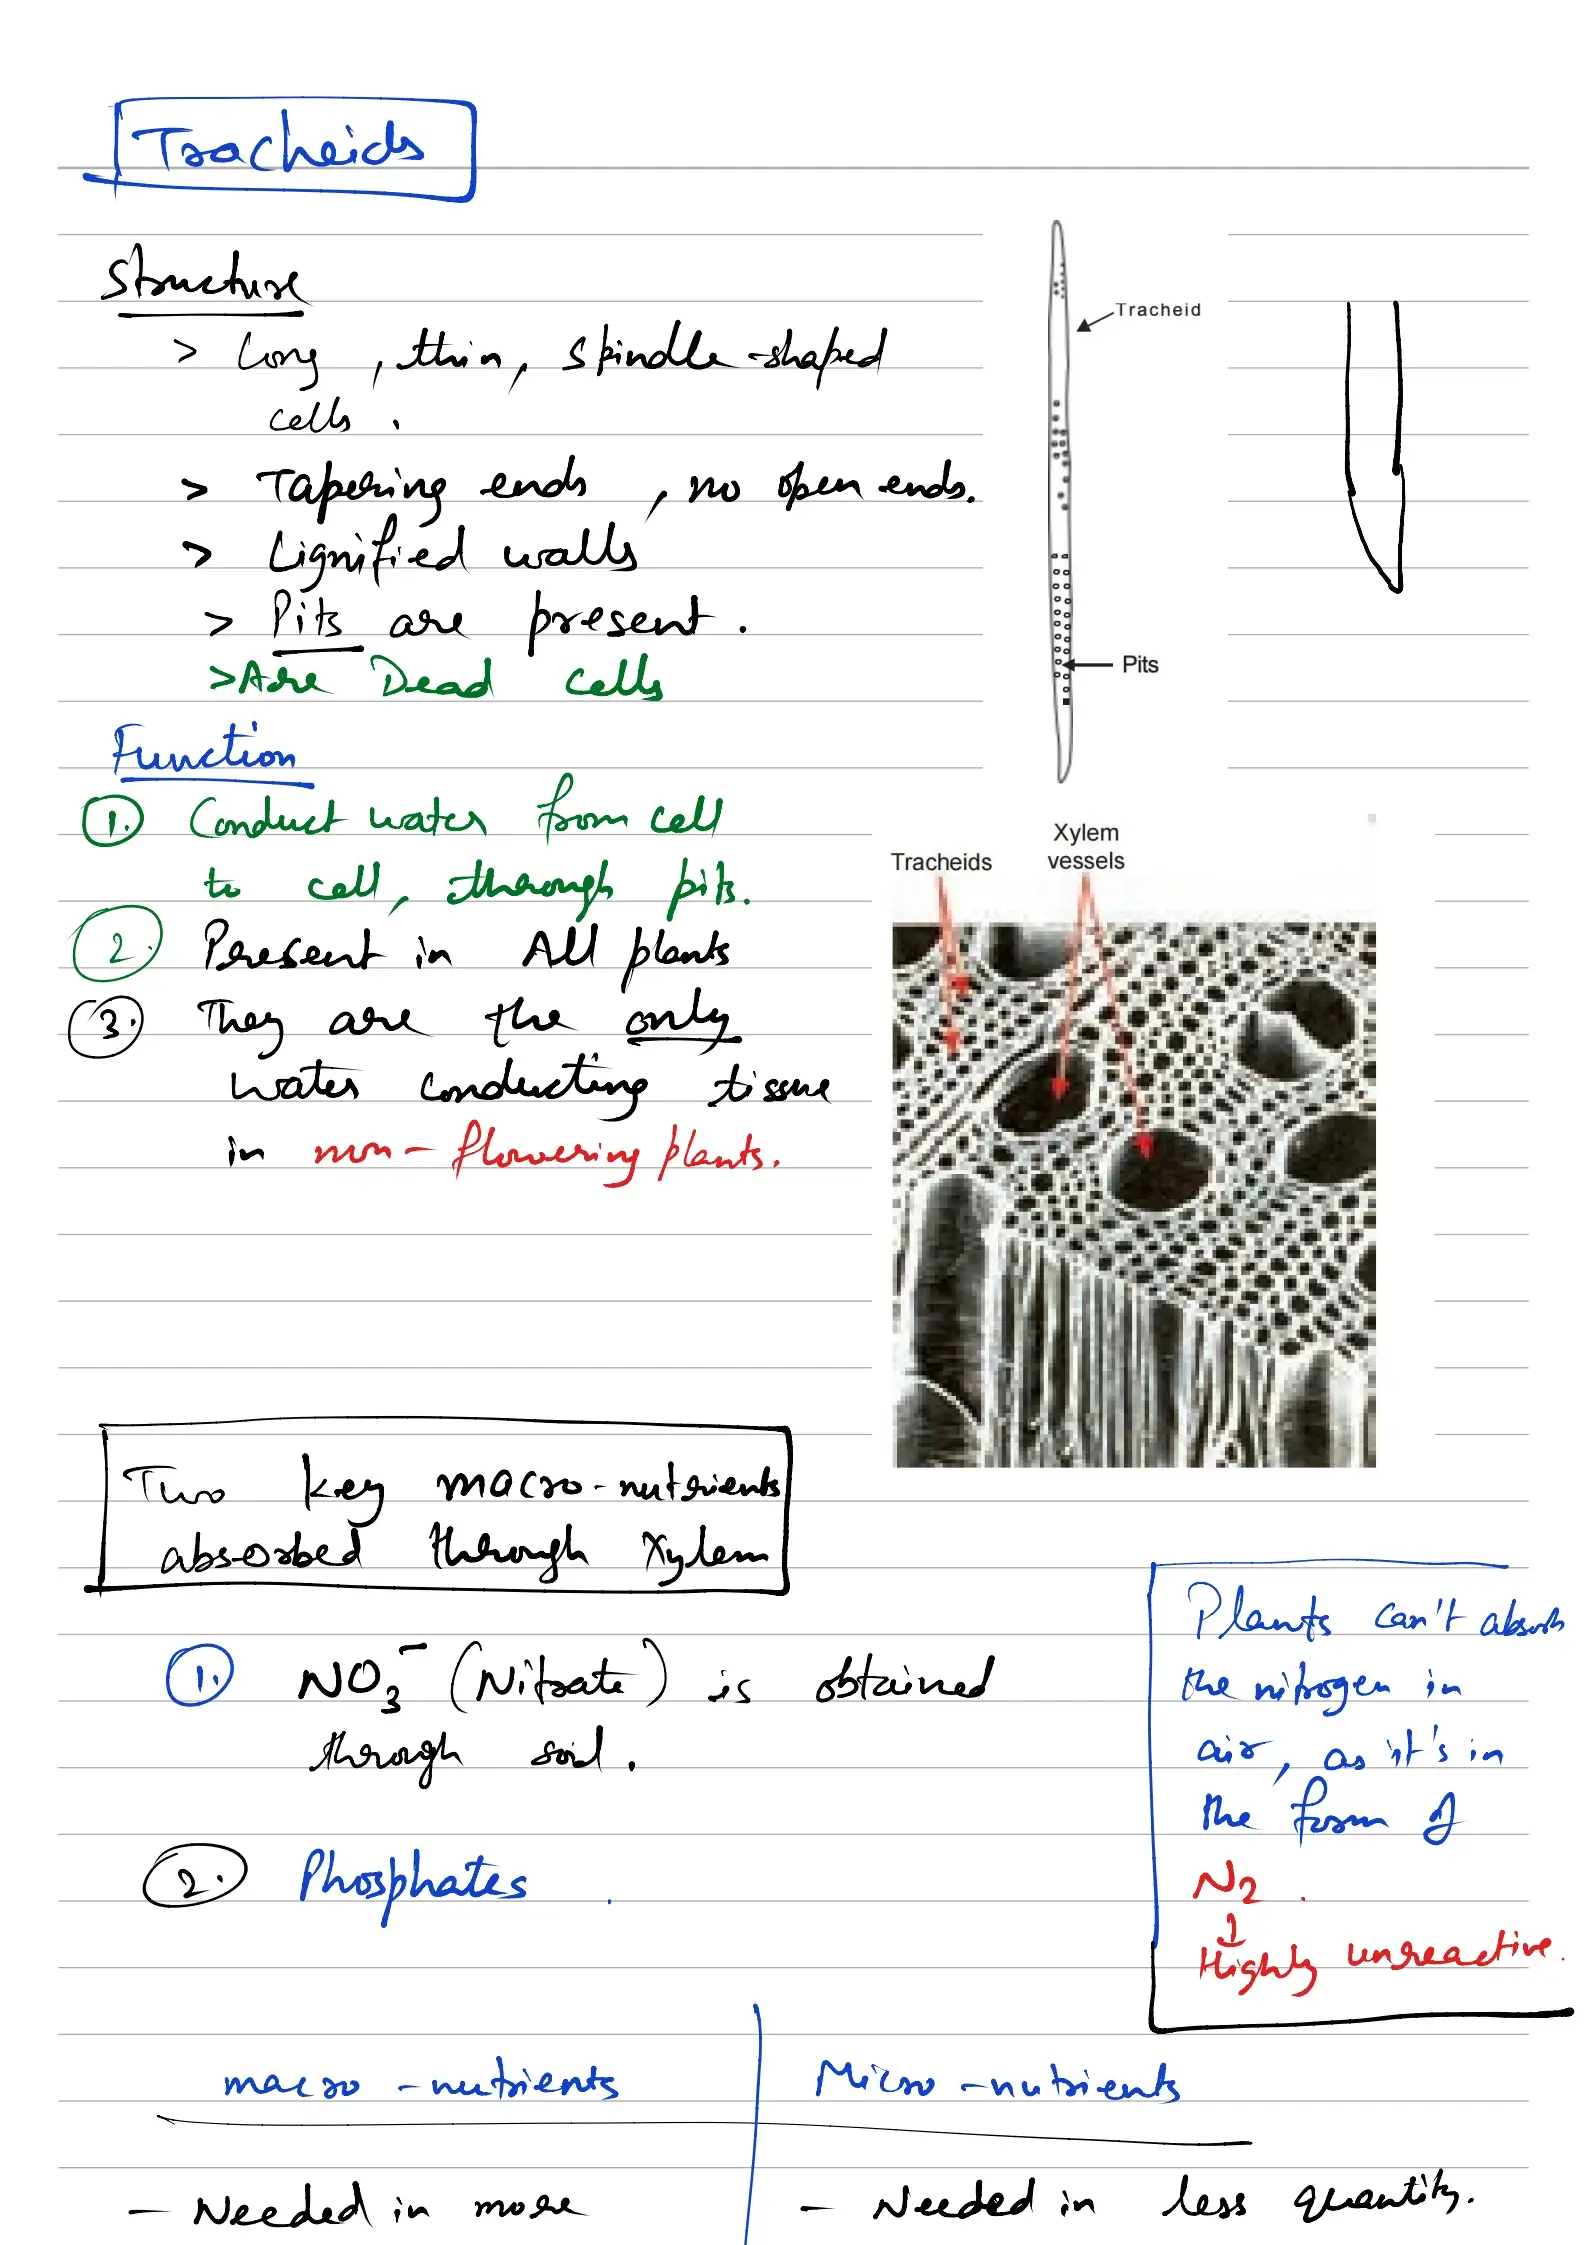 Tracheids
Structure
> Long, thin, spindle-shaped
cells.
> Tapering ends, no open ends.
> Lignified walls
> Pits are present.
> Are Dead cells
Function
1. Conduct water from cell
to cell, through pits.
2. Present in All plants
3. They are the only
water conducting tissue
in non-flowering plants.
Tracheid
Pits
Tracheids
Xylem
vessels
Two key macro-nutrients
absorbed through Xylem
1. NO₃⁻ (Nitrate) is obtained
through soil.
2. Phosphates.
Plants can't absorb
the nitrogen in
air, as it's in
the form of
N₂.
↓
Highly unreactive.
macro-nutrients
Micro-nutrients
- Needed in more
- Needed in less quantity.